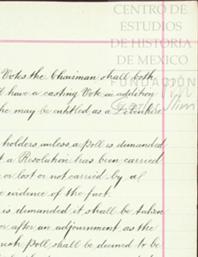 CENTRO DE
ESTUDIOS
DE HISTORIA
DE MEXICO
FUNDACIÓN
Slim
Votes the Chairman shall both
l have a casting Vote in addition
he may be entitled as a
holders unless a Poll is demanded
t a Resolution has been carried
or lost or not carried by a
evidence of the fact
is demanded it shall be taken
or after an adjournment as the
such Poll shall be deemed to be